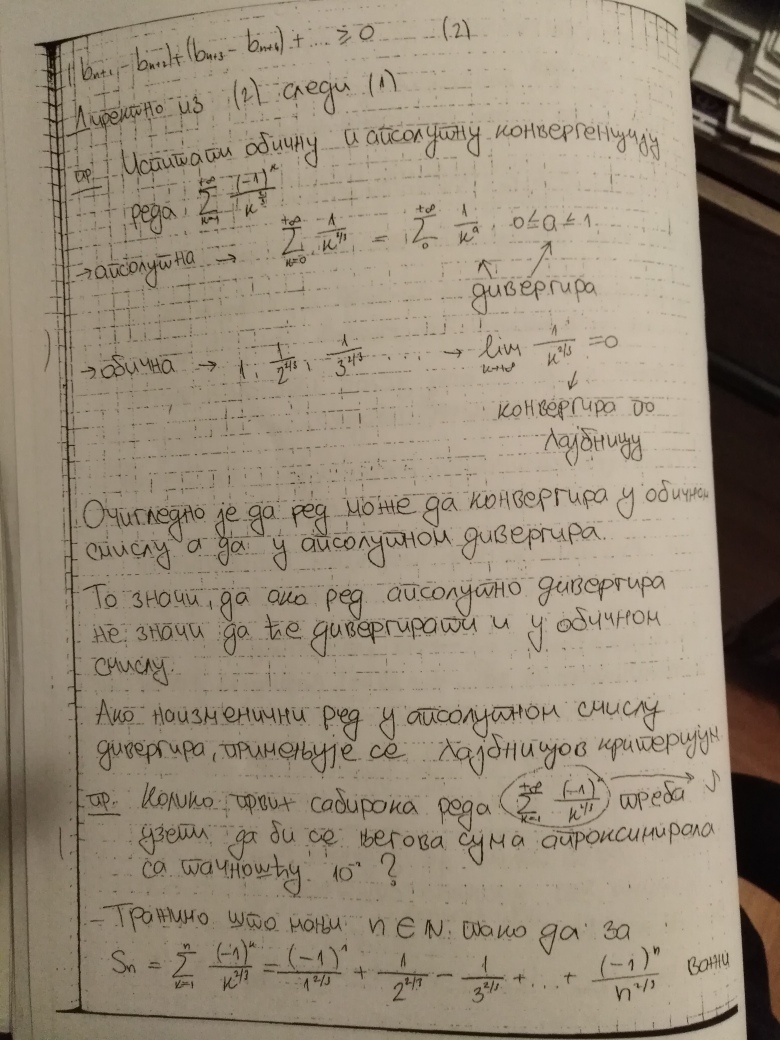 (b_{n+1} - b_{n+2}) + (b_{n+3} - b_{n+4}) + ... ≥ 0 (2)
Директно из (2) следи (1)
пр. Испитати обичну и апсолутну конвергенцију
реда \sum_{k=1}^{+∞} \frac{(-1)^k}{k^{2/3}}
→ апсолутна → \sum_{k=0}^{+∞} \frac{1}{k^{2/3}} = \sum_{0}^{+∞} \frac{1}{k^a} 0 ≤ a ≤ 1.
дивергира
→ обична → 1, \frac{1}{2^{2/3}}, \frac{1}{3^{2/3}} ... → \lim_{k→+∞} \frac{1}{k^{2/3}} = 0
конвергира по
Лајбницу
Очигледно је да ред може да конвергира у обичном
смислу а да у апсолутном дивергира.
То значи, да ако ред апсолутно дивергира
не значи да ће дивергирати и у обичном
смислу.
Ако наизменични ред у апсолутном смислу
дивергира, примењује се Лајбницов критеријум
пр. Колико првих сабирака реда \sum_{k=1}^{+∞} \frac{(-1)^k}{k^{2/3}} треба
узети да би се његова сума апроксимирала
са тачношћу 10^{-2} ?
- Тражимо што мањи n ∈ N тако да за
S_n = \sum_{k=1}^{n} \frac{(-1)^k}{k^{2/3}} = \frac{(-1)^1}{1^{2/3}} + \frac{1}{2^{2/3}} - \frac{1}{3^{2/3}} + ... + \frac{(-1)^n}{n^{2/3}} важи